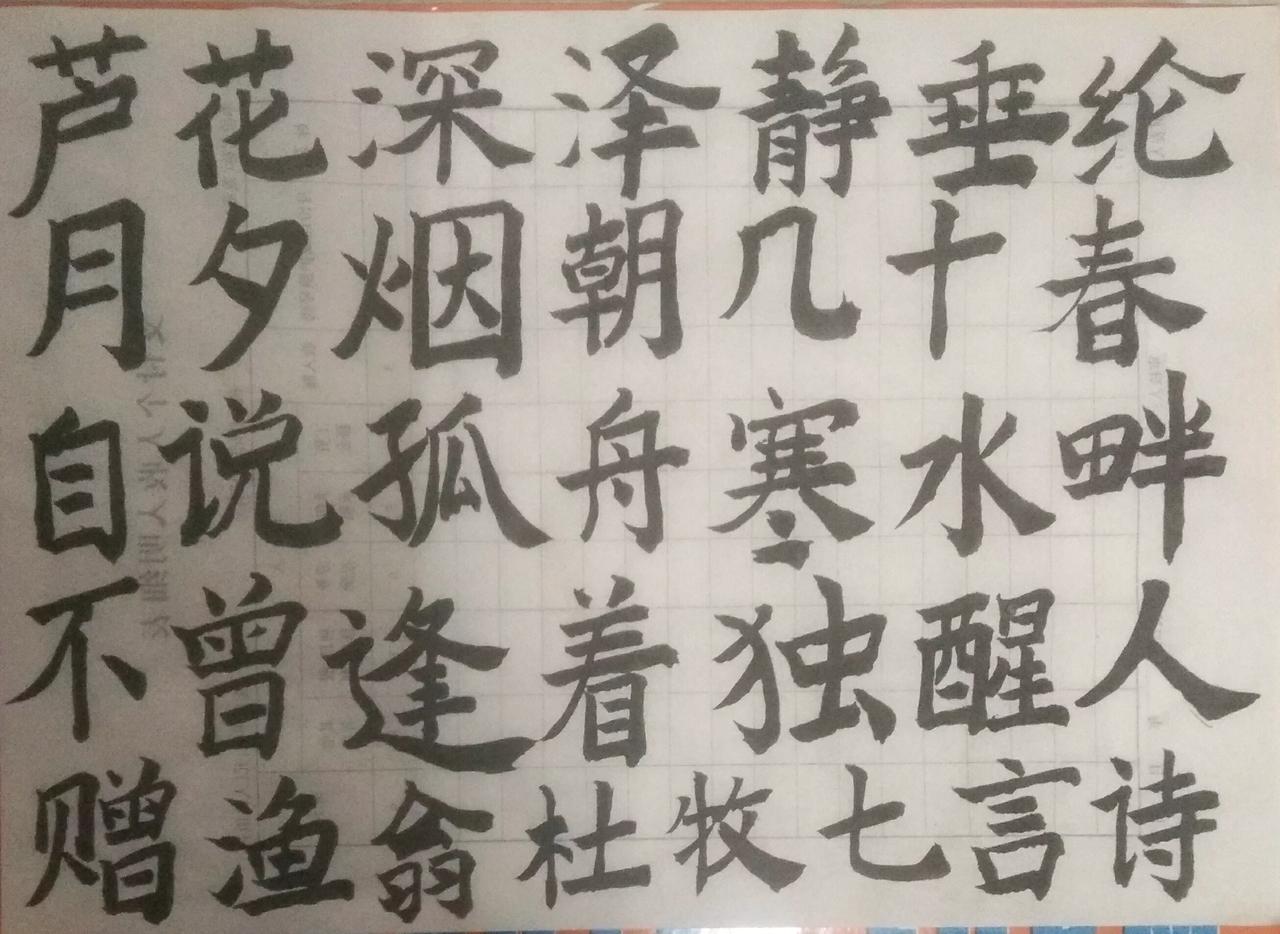 芦花深泽静垂纶
月夕烟朝几十春
自说孤舟寒水畔
不曾逢着独醒人
赠渔翁杜牧七言诗